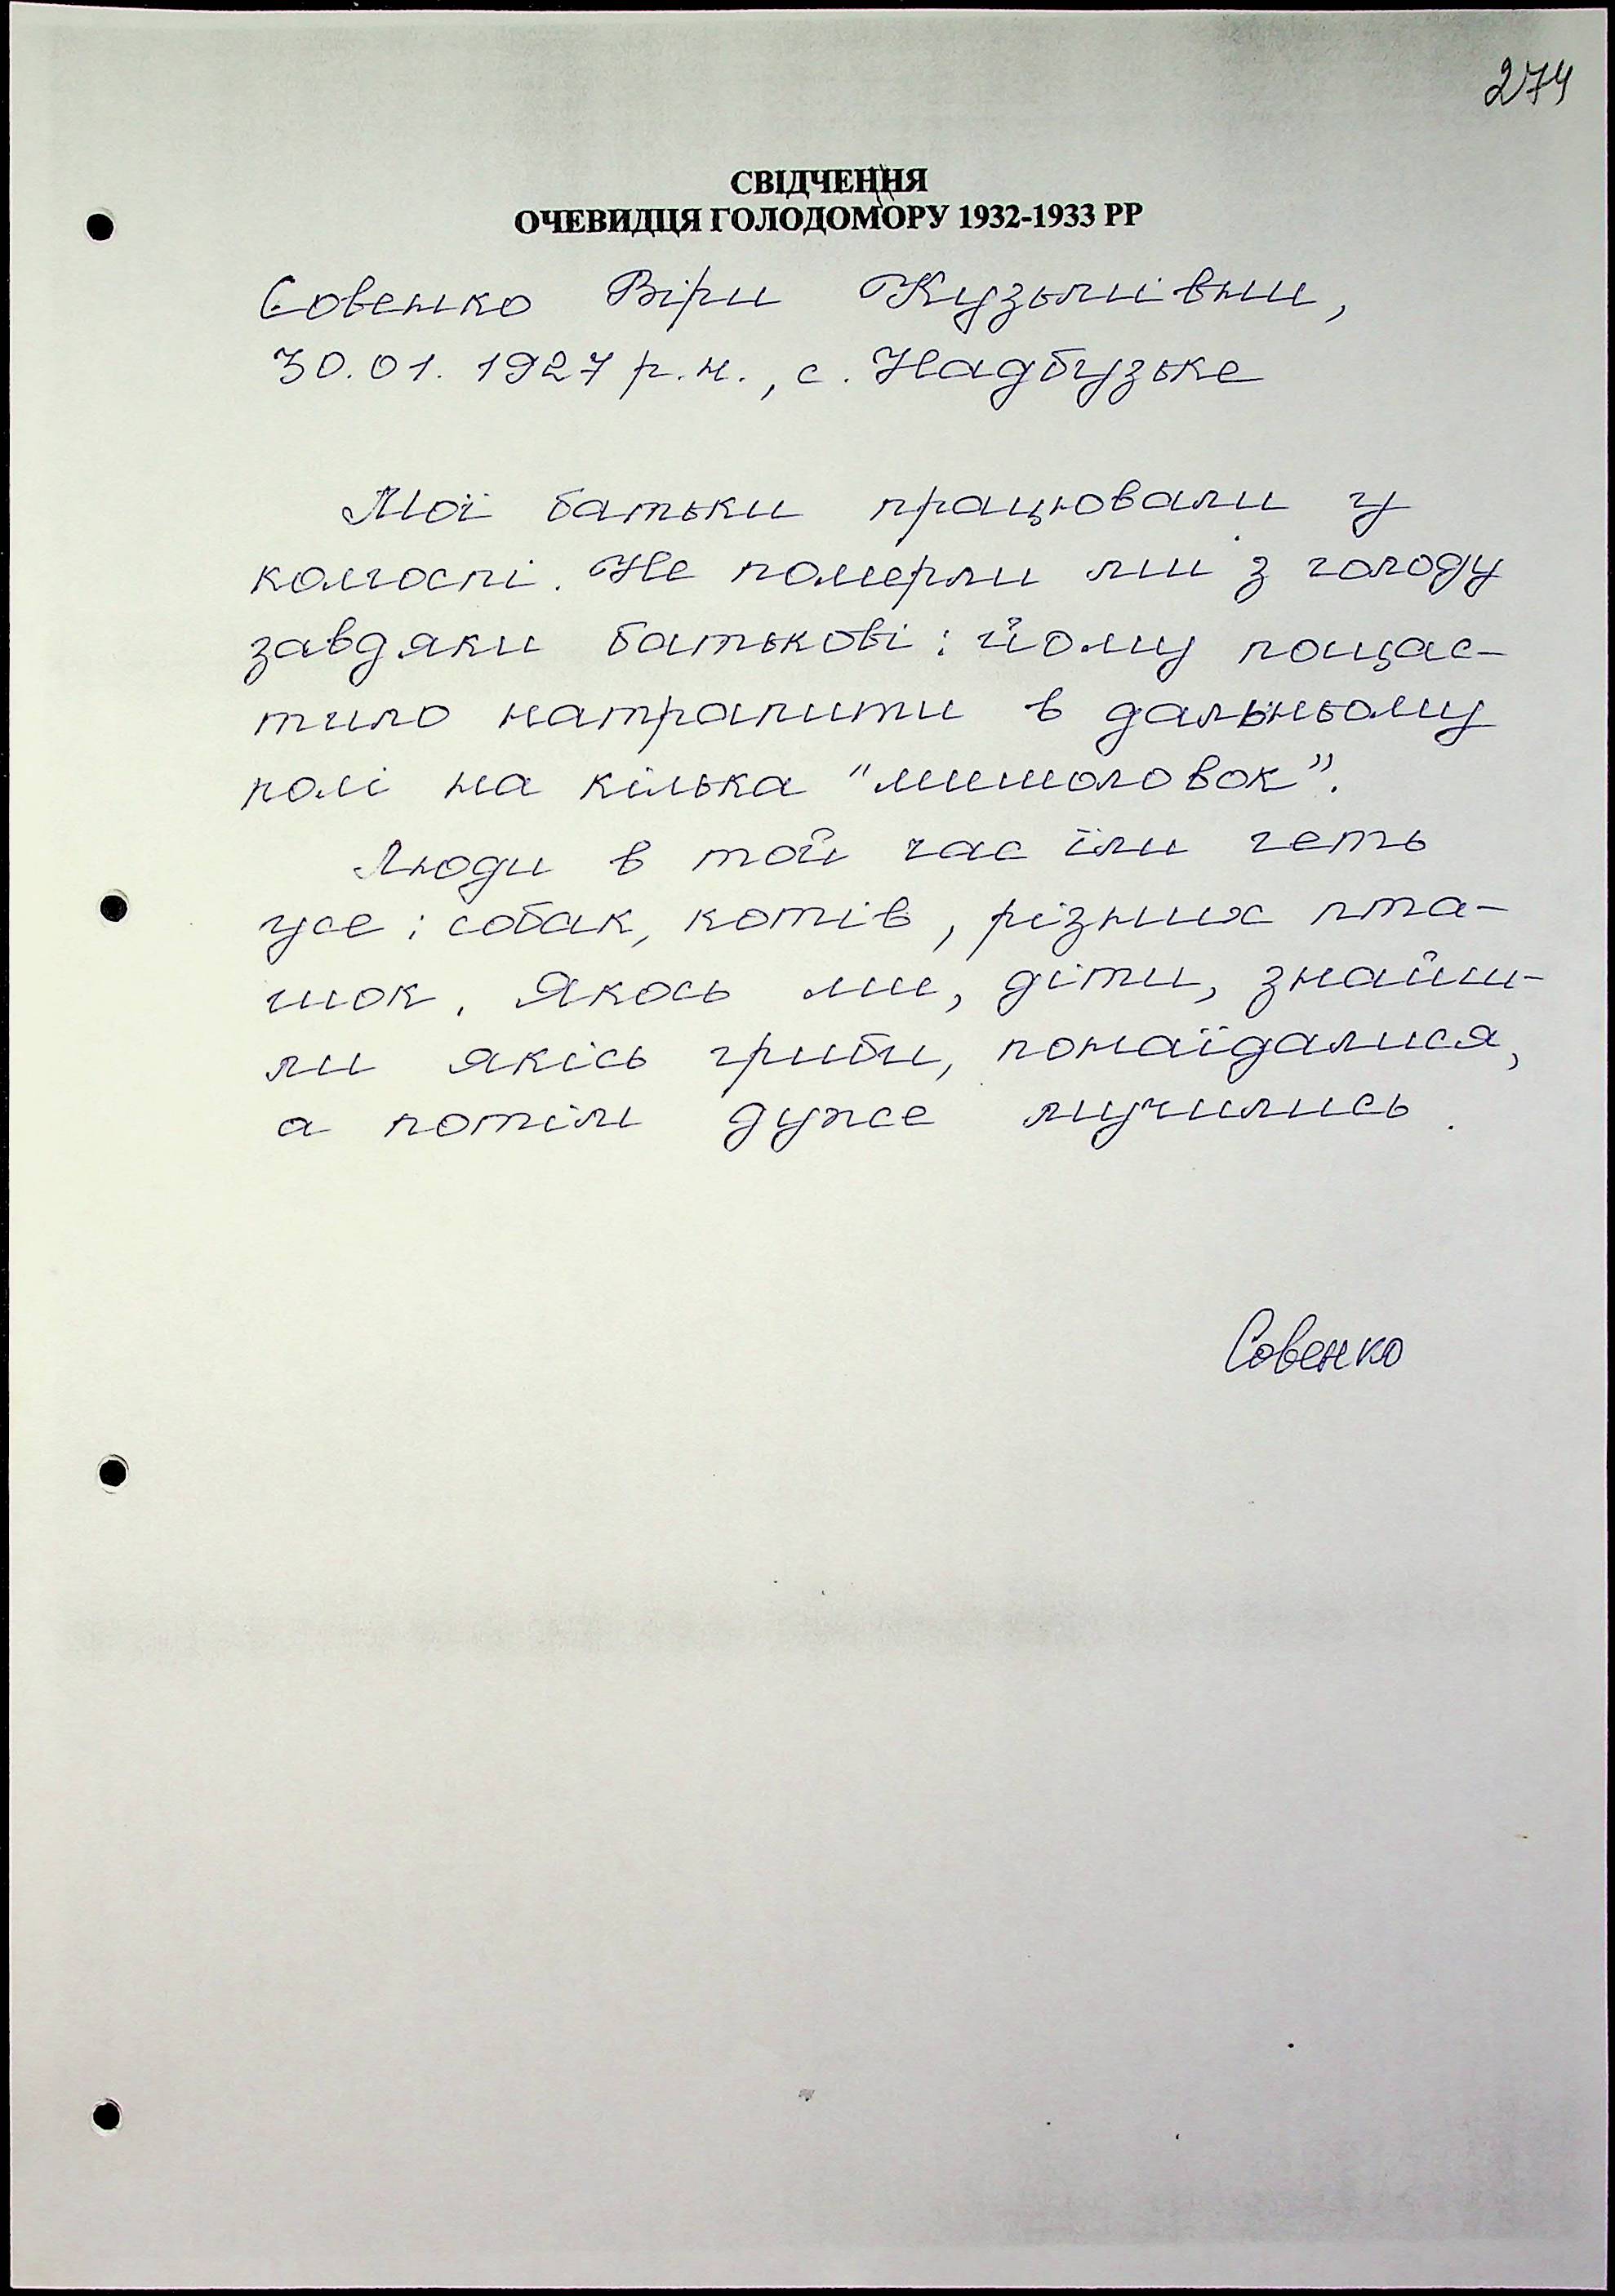 274
СВІДЧЕННЯ
ОЧЕВИДЦЯ ГОЛОДОМОРУ 1932-1933 РР
Совенко Віри Кузьмівни,
30.01.1927 р.н., с. Надбузьке
Мої батьки працювали у
колгоспі. Не померли ми з голоду
завдяки батькові: йому пощас-
тило натрапити в дальньому
полі на кілька "мишоловок".
Люди в той час їли геть
усе: собак, котів, різних пта-
шок. Якось ми, діти, знайш-
ли якісь гриби, понаїдалися,
а потім дуже мучились.
Совенко